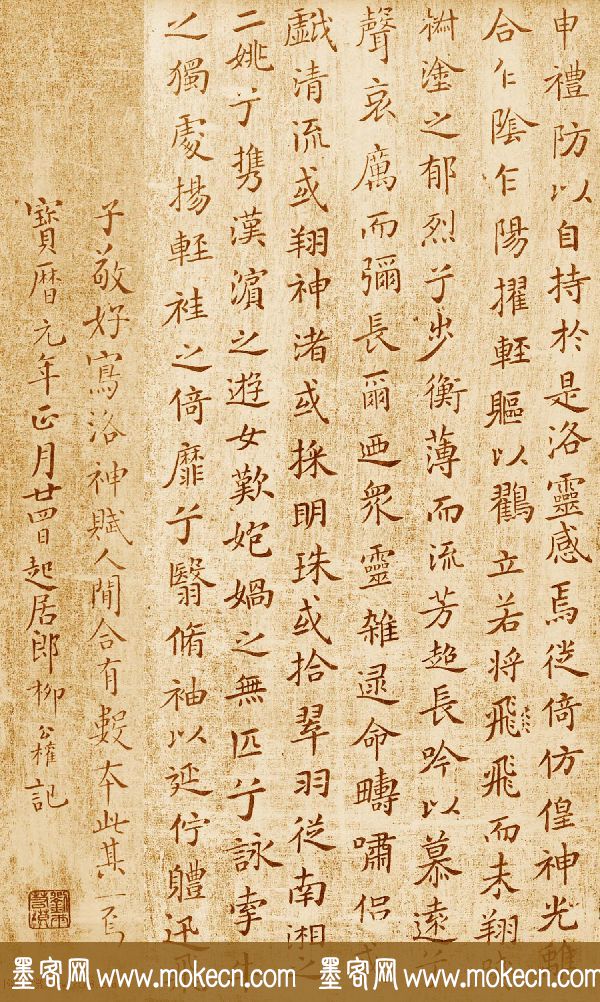 申禮防以自持於是洛靈感焉徙倚仿偟神光離
合乍陰乍陽擢輕軀以鶴立若將飛飛而未翔
椒塗之郁烈兮步衡薄而流芳超長吟以慕遠兮
聲哀厲而彌長爾迺衆靈雜遝命疇嘯侶或
戲清流或翔神渚或採明珠或拾翠羽從南湘之
二姚兮携漢濱之遊女歎匏媧之無匹兮詠牽牛
之獨處揚輕袿之倚靡兮翳脩袖以延佇軆迅飛
子敬好寫洛神賦人間合有數本此其一焉
寶曆元年正月廿四日起居郎柳公權記
墨客网 www.mokecn.com 墨客网 www.mokecn.com